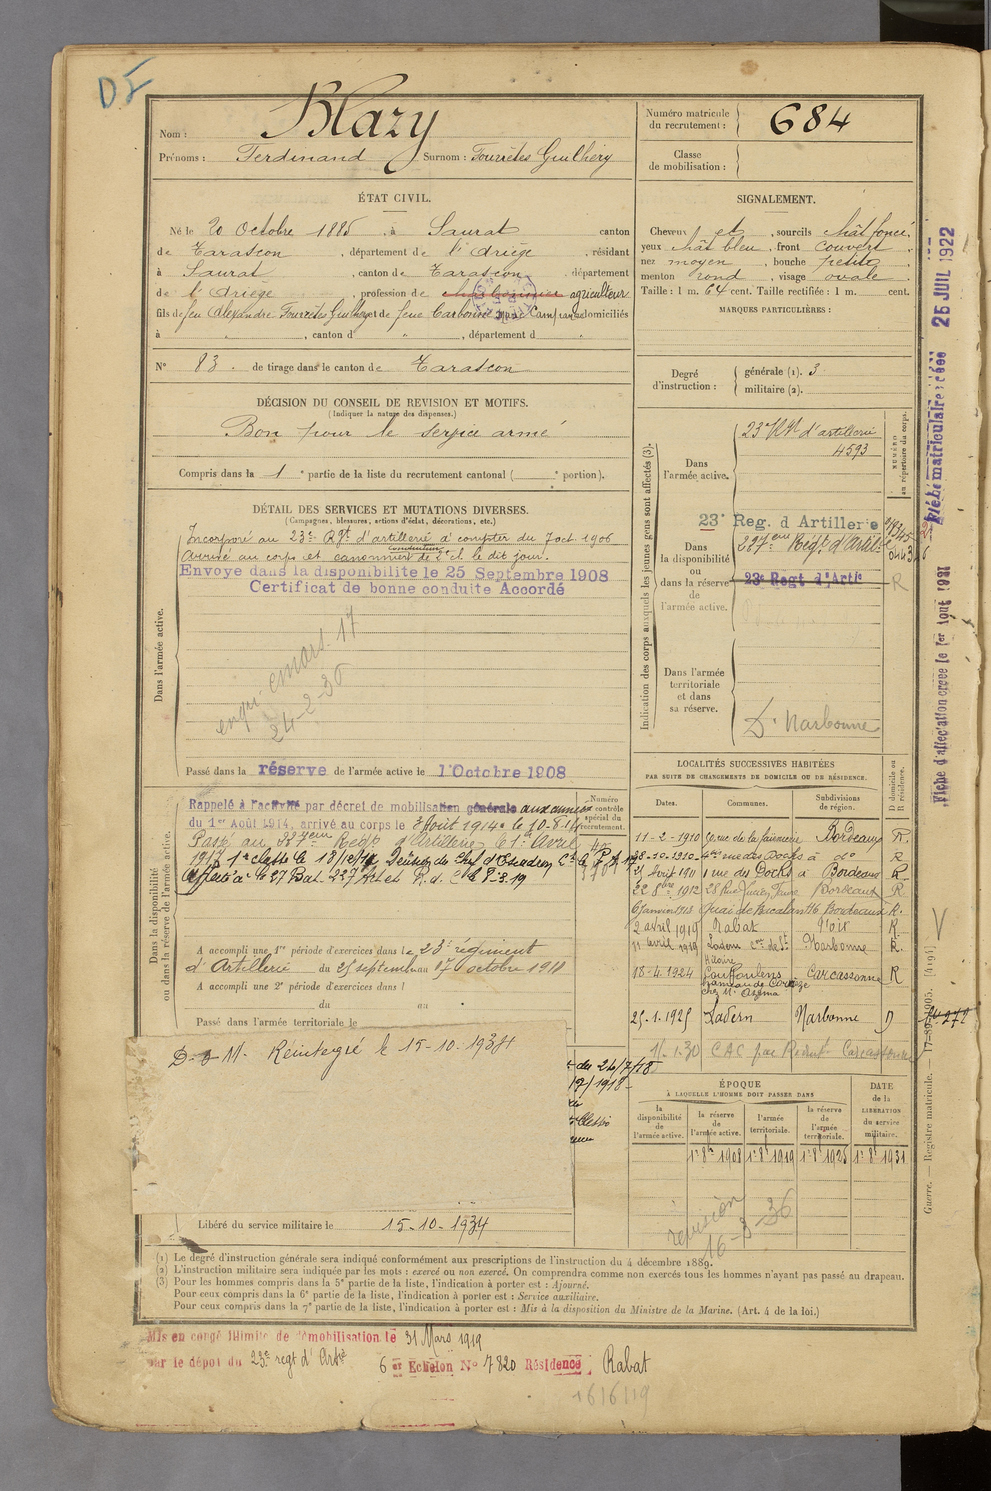 DF
Nom : Blazy
Prénoms : Ferdinand Surnom : Fourrètes Guilhery
Numéro matricule du recrutement : 684
Classe de mobilisation :
ÉTAT CIVIL.
Né le 20 Octobre 1885, à Saurat canton
de Tarascon, département de l'Ariège, résidant
à Saurat, canton de Tarascon, département
de l'Ariège, profession de agriculteur
fils de feu Alexandre Fourrètes Guilhery et de feue Carbonne domiciliés
à " , canton d " , département d "
N° 83. de tirage dans le canton de Tarascon
DÉCISION DU CONSEIL DE REVISION ET MOTIFS.
(Indiquer la nature des dispenses.)
Bon pour le service armé
Compris dans la 1e partie de la liste du recrutement cantonal ( e portion).
SIGNALEMENT.
Cheveux et, sourcils chât foncé,
yeux chât bleu, front couvert
nez moyen, bouche petite,
menton rond, visage ovale
Taille : 1 m. 64 cent. Taille rectifiée : 1 m. cent.
MARQUES PARTICULIÈRES :
Degré d'instruction : générale (1). 3
militaire (2).
DÉTAIL DES SERVICES ET MUTATIONS DIVERSES.
(Campagnes, blessures, actions d'éclat, décorations, etc.)
Dans l'armée active.
Incorporé au 23e Rgt d'artillerie à compter du 7 oct. 1906
Arrivé au corps et canonnier conducteur de 2e cl le dit jour.
Envoye dans la disponibilite le 25 Septembre 1908
Certificat de bonne conduite Accordé
mars 17
24-2-36
Passé dans la réserve de l'armée active le 1 Octobre 1908
Indication des corps auxquels les jeunes gens sont affectés (3).
NUMÉRO au répertoire du corps.
Dans l'armée active.
23e Rgt d'artillerie
4593
Dans la disponibilité ou dans la réserve de l'armée active.
23e Reg. d Artillerie
227eme Regt. d'Artil
23e Regt d'Artie
R
Dans l'armée territoriale et dans sa réserve.
Dt Narbonne
Dans la disponibilité ou dans la réserve de l'armée active.
Numéro au contrôle spécial du recrutement.
Rappelé à l'activité par décret de mobilisation générale aux armées
du 1er Août 1914, arrivé au corps le 3 Août 1914. le 10-8-14
Passé au 227eme Regt d'Artillerie le 1er Avril
1917 1e classe le 18/10/17 Décision du Chef d'Escadron
Affecté a le 27 Bat. 227 Art et P. d. C le 8-3-19
A accompli une 1re période d'exercices dans le 23e régiment
d'Artillerie du 25 septembre au 17 octobre 1910
A accompli une 2e période d'exercices dans l
du au
Passé dans l'armée territoriale le
D-o M. Réintégré le 15-10-1934
du 24/7/18
1918
Libéré du service militaire le 15-10-1934
LOCALITÉS SUCCESSIVES HABITÉES
PAR SUITE DE CHANGEMENTS DE DOMICILE OU DE RÉSIDENCE.
Dates. Communes. Subdivisions de région. D domicile ou R résidence.
11-2-1910 rue de la Bordeaux R.
28-10-1910 rue des Docks à do R
25 Avril 1911 rue des Docks à Bordeaux R
22 8bre 1912 28 Rue Lucien Faure Bordeaux R
6 Janvier 1913 Quai de Bacalan 116 Bordeaux R.
2 avril 1919 Rabat R.
11 avril 1919 Ladern cne de St Hilaire Narbonne R.
18-4-1924 Couffoulens hameau de Cornèze chez Mr Carcassonne R
25-1-1925 Ladern Narbonne D
1/1-30 CAC par Recrut Carcassonne
ÉPOQUE
À LAQUELLE L'HOMME DOIT PASSER DANS
la disponibilité de l'armée active. la réserve de l'armée active. l'armée territoriale. la réserve de l'armée territoriale.
DATE de la LIBÉRATION du service militaire.
1r 8bre 1908 1r 8bre 1919 1r 8bre 1925 1r 8bre 1931
revision
16-3-36
(1) Le degré d'instruction générale sera indiqué conformément aux prescriptions de l'instruction du 4 décembre 1889.
(2) L'instruction militaire sera indiquée par les mots : exercé ou non exercé. On comprendra comme non exercés tous les hommes n'ayant pas passé au drapeau.
(3) Pour les hommes compris dans la 5e partie de la liste, l'indication à porter est : Ajourné.
Pour ceux compris dans la 6e partie de la liste, l'indication à porter est : Service auxiliaire.
Pour ceux compris dans la 7e partie de la liste, l'indication à porter est : Mis à la disposition du Ministre de la Marine. (Art. 4 de la loi.)
Mis en congé illimité de démobilisation le 31 Mars 1919
par le dépôt du 23e regt d'Artie
6 er Echelon N° 7820 Résidence : Rabat
1616/19
Fiche matriculaire créée 25 JUIL 1922
Fiche d'affectation créée le 1er Août 1921
Guerre. — Registre matricule. — 17-89-1905. [4194]